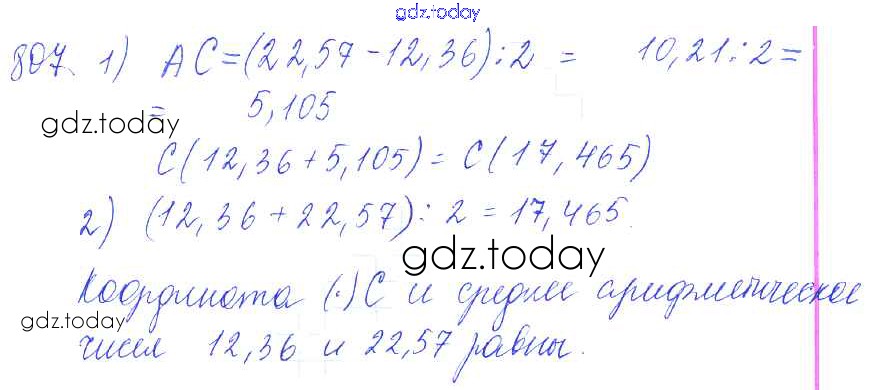 gdz.today
807. 1) AC=(22,57-12,36):2 = 10,21:2=
= 5,105
gdz.today
C(12,36+5,105)=C(17,465)
2) (12,36+22,57):2=17,465.
gdz.today
Координата (·)C и среднее арифметическое
gdz.today
чисел 12,36 и 22,57 равны.